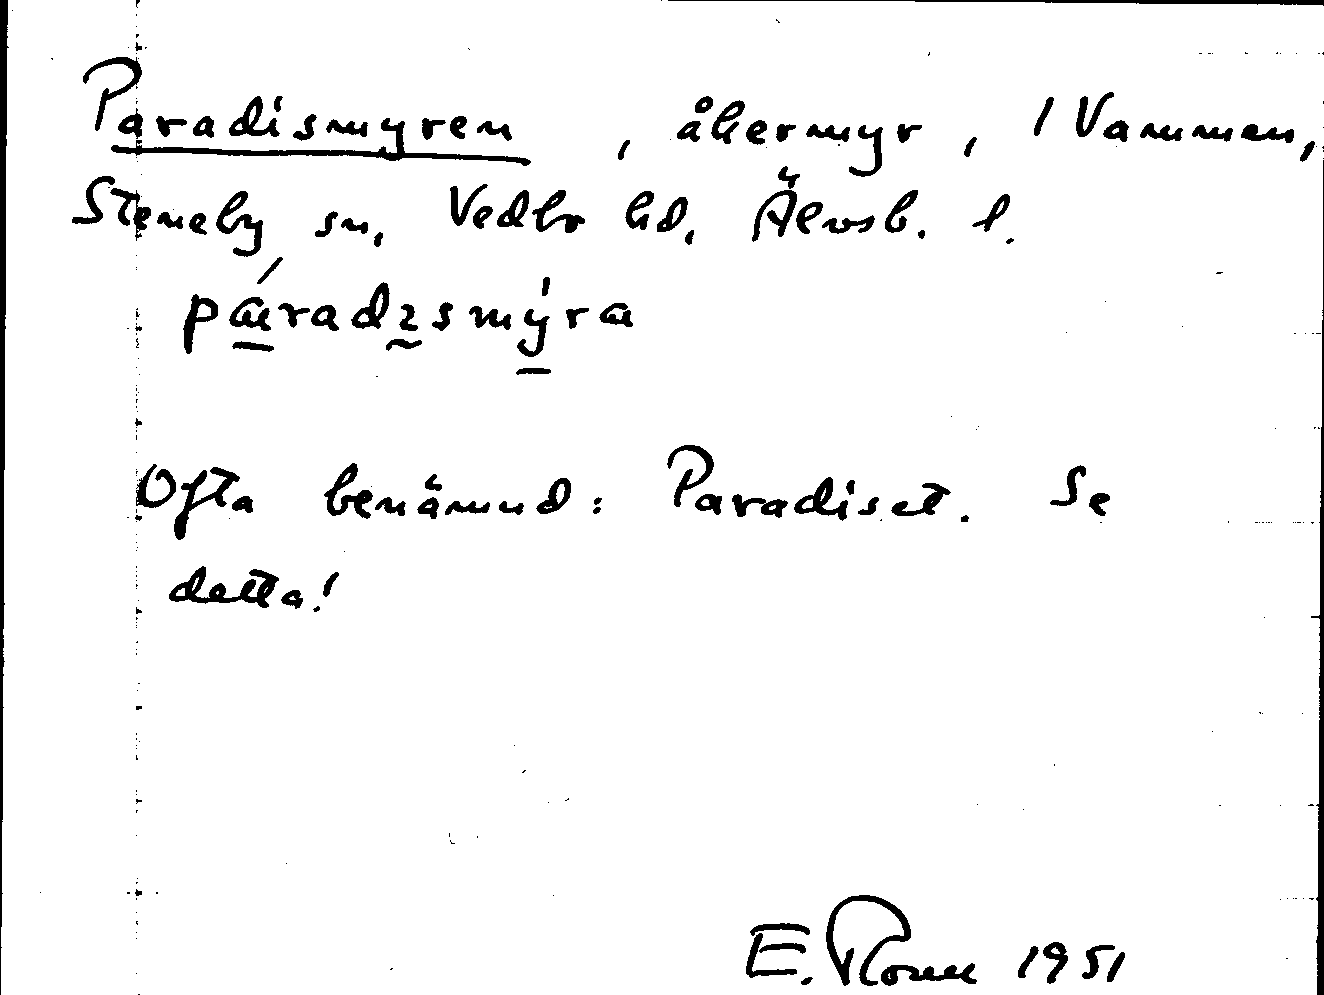 Paradismyren, åkermyr, / Vammen,
Steneby sn, Vedbo hd, Älvsb. l.
páradɩsmýra
Ofta benämnd: Paradiset. Se
detta!
E. 1951